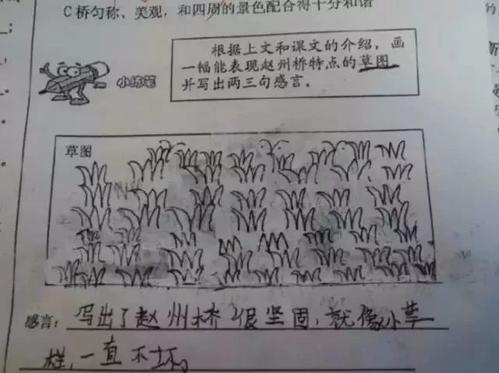 C桥匀称、美观，和四周的景色配合得十分和谐
小练笔
根据上文和课文的介绍，画
一幅能表现赵州桥特点的草图
并写出两三句感言。
草图
感言：写出了赵州桥很坚固，就像小草
样，一直不坏。